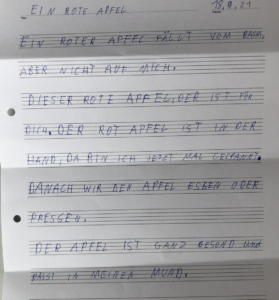 EIN ROTE APFEL 18.9.21
EIN ROTER APFEL FÄLLT VOM BAUM,
ABER NICHT AUF MICH.
DIESER ROTE APFEL, DER IST FÜR
DICH. DER ROT APFEL IST IN DER
HAND, DA BIN ICH JETZT MAL GESPANNT.
DANACH WIR DEN APFEL ESBEN ODER
PRESSEN.
DER APFEL IST GANZ GESOND UND
PASST IN MEINEN MUND.